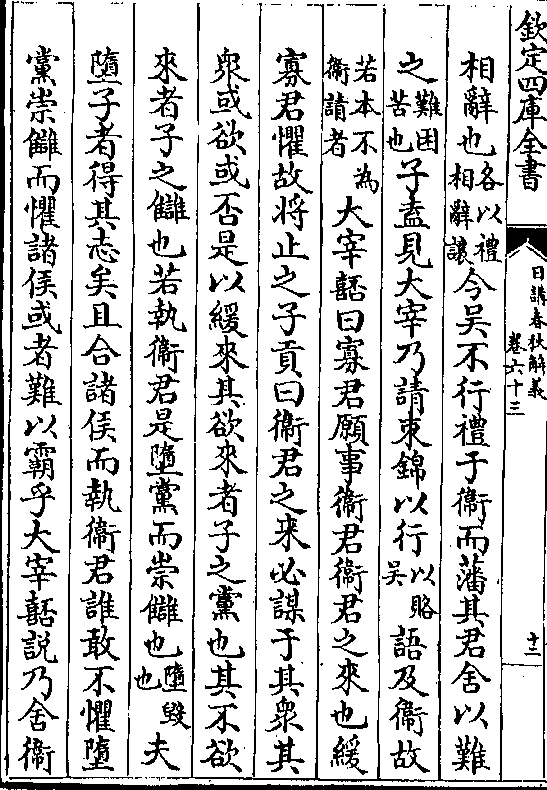 欽定四庫全書
日講春秋解義
卷六十三
十二
相辭也各以禮相辭讓今吳不行禮于衛而藩其君舍以難
之難困苦也子盍見大宰乃請束錦以行以賂吳語及衛故
若本不為衛請者大宰嚭曰寡君願事衛君衛君之來也緩
寡君懼故将止之子貢曰衛君之来必謀于其衆其
衆或欲或否是以緩來其欲來者子之黨也其不欲
來者子之讎也若執衛君是墮黨而崇讎也墮毀也夫
墮子者得其志矣且合諸侯而執衛君誰敢不懼墮
黨崇讎而懼諸侯或者難以霸乎大宰嚭説乃舍衛